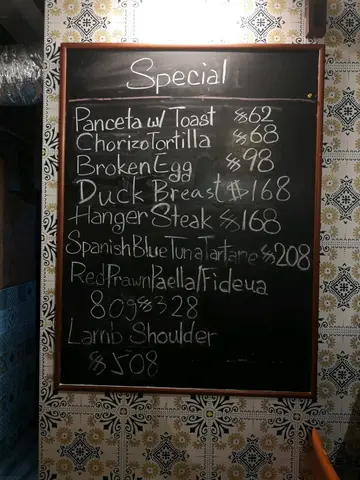 Special
Panceta w/ Toast $62
Chorizo Tortilla $68
Broken Egg $98
Duck Breast $168
Hanger Steak $168
Spanish Blue Tuna Tartare $208
Red Prawn Paella/Fideua
809$328
Lamb Shoulder
$508